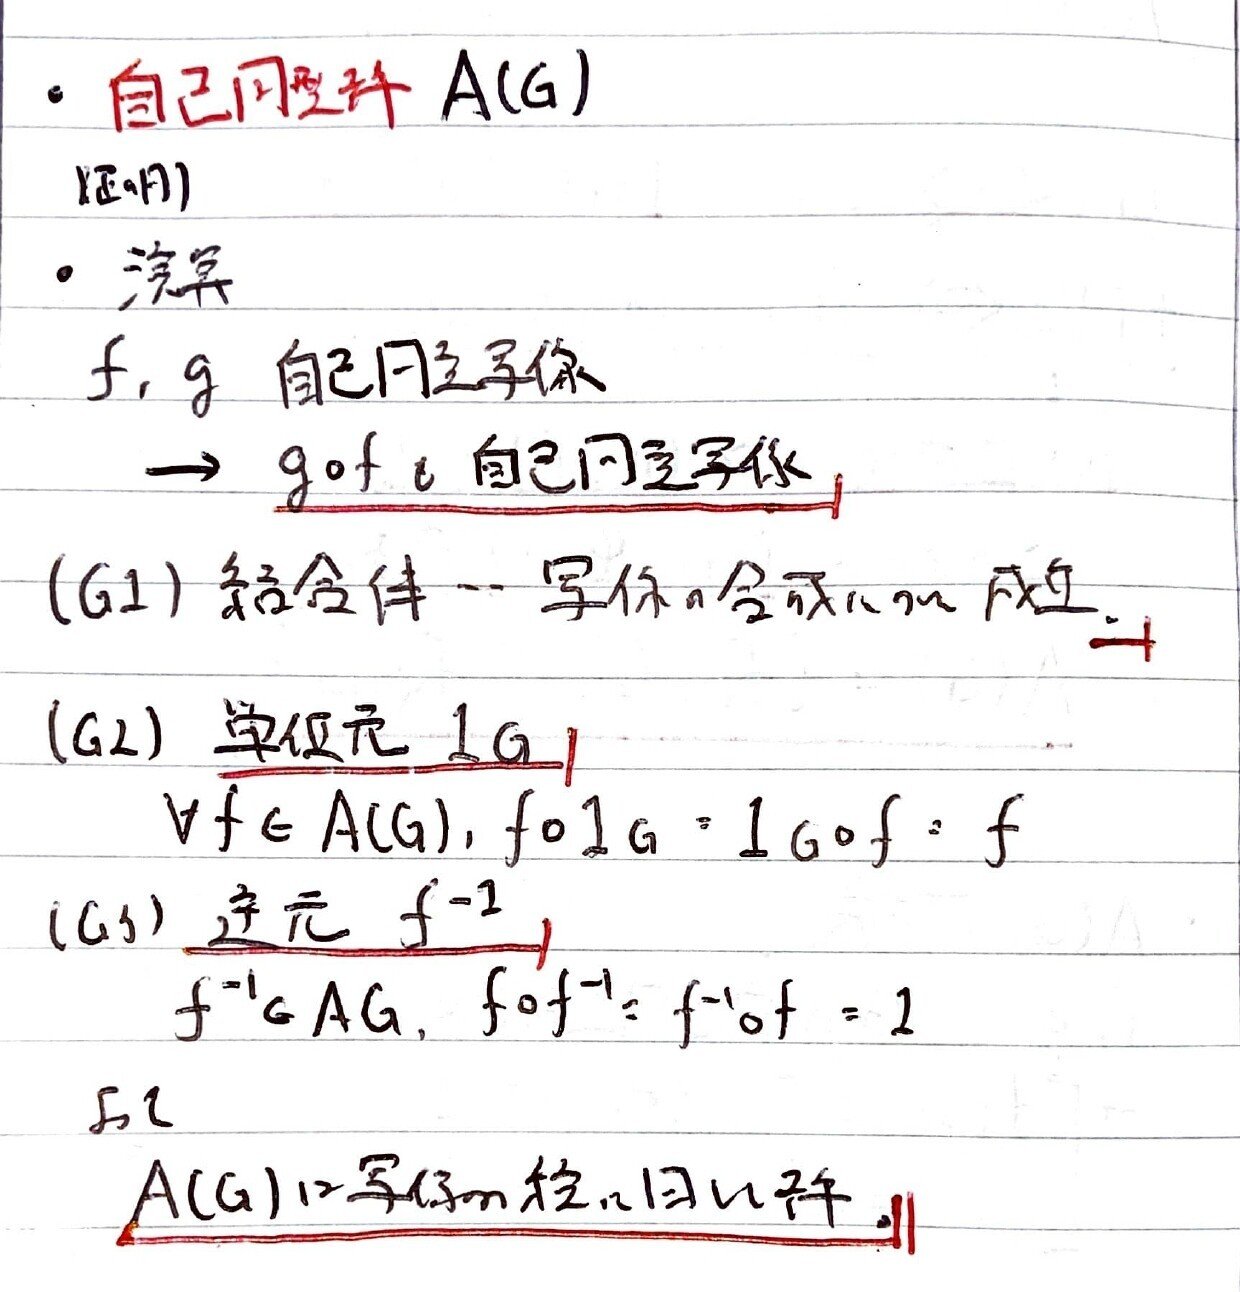 ・自己同型群 A(G)
証明)
・演算
f, g 自己同型写像
→ g∘f も 自己同型写像
(G1) 結合律 … 写像の合成について成立.
(G2) 単位元 1G
∀f ∈ A(G), f∘1G = 1G∘f = f
(G3) 逆元 f⁻¹
f⁻¹ ∈ AG, f∘f⁻¹ = f⁻¹∘f = 1
よって
A(G)は写像の積に関して群.